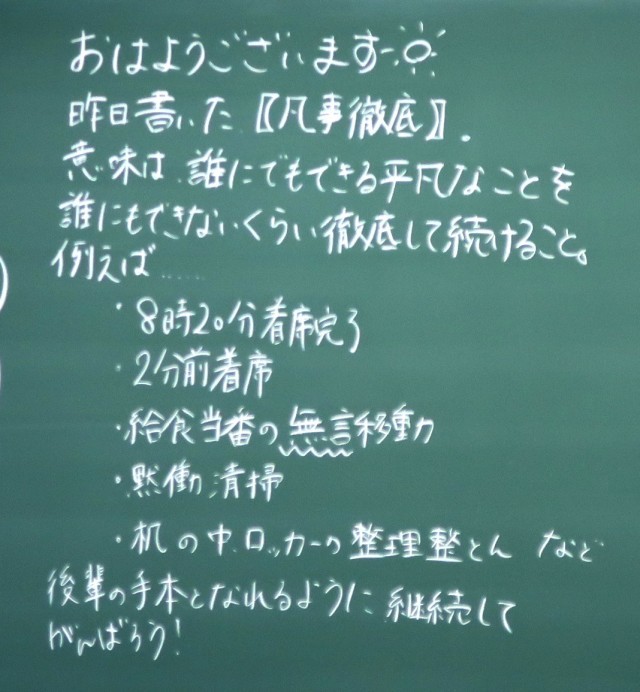 おはようございます
昨日書いた【凡事徹底】.
意味は、誰にでもできる平凡なことを
誰にもできないくらい徹底して続けること。
例えば……
・8時20分着席完了
・2分前着席
・給食当番の無言移動
・黙働清掃
・机の中、ロッカーの整理整とん など
後輩の手本となれるように継続して
がんばろう!